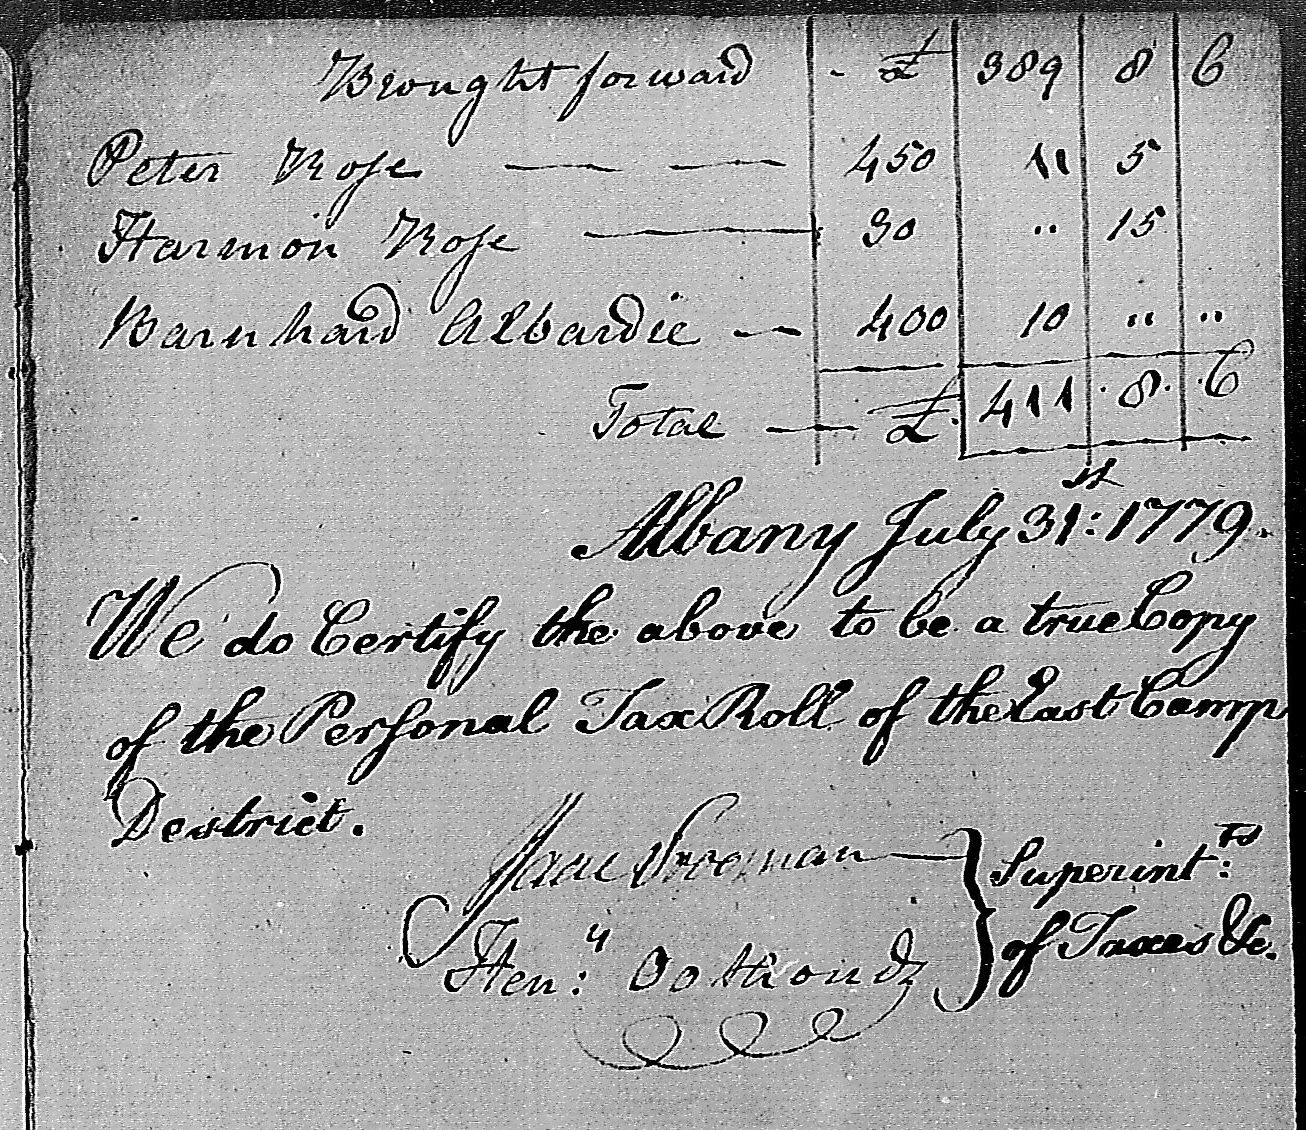 Brought forward - £ 389 8 6
Peter Rose — — 450 11 5
Harmon Rose — 30 " 15
Barnhard Albardie — 400 10 " "
Total — £. 411 . 8 . 6
Albany July 31:st 1779.
We do Certify the above to be a true Copy
of the Personal Tax Roll of the East Camp
District.
Isaac Vrooman — } Superint:ts
Hen:y Oothoudt } of Taxes &c.